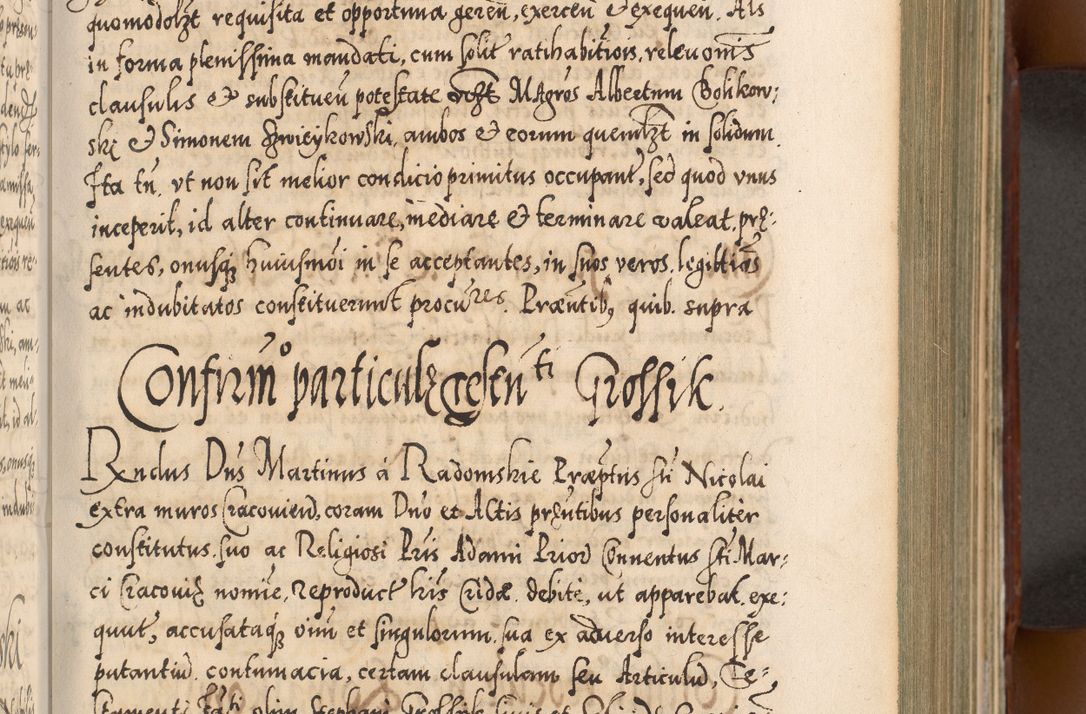 quomodolzt requisita et opportuna geren, exercen & exequen. Als
in forma plenissima mandati, cum solit ratihabitiois, relevonis
clausulis & substituen potestate Mgros Albertum Bolikow:
ski & Simonem ambos & eorum quemlzt in solidum.
Ita tn. vt non sit melior condicio primitus occupant, sed quod vnus
inceperit, id alter continuare, mediare & terminare valeat. prę:
sentes, onusq huiusmoi in se acceptantes, in suos veros. legittios
ac indubitatos constituerunt procures. Præntib, quib. supra
Confirmo particulę testnti Grossik.
Rndus Dns Martinus à Radomskie Præptus Sti Nicolai
extra muros Cracovien, coram Dno et Actis pręntibus personaliter
constitutus. suo ac Religiosi Pris Adami Prior Conventus Sti Mar:
ci Cracovię nomie, reproduct his Cridæ debitè, ut apparebat. exe:
quut, accusataq oium et singulorum. sua ex adverso interesse
putantiu contumacia, certam clausulam seu Articulu, Te:
stamenti olim Stephani Grossik civis et